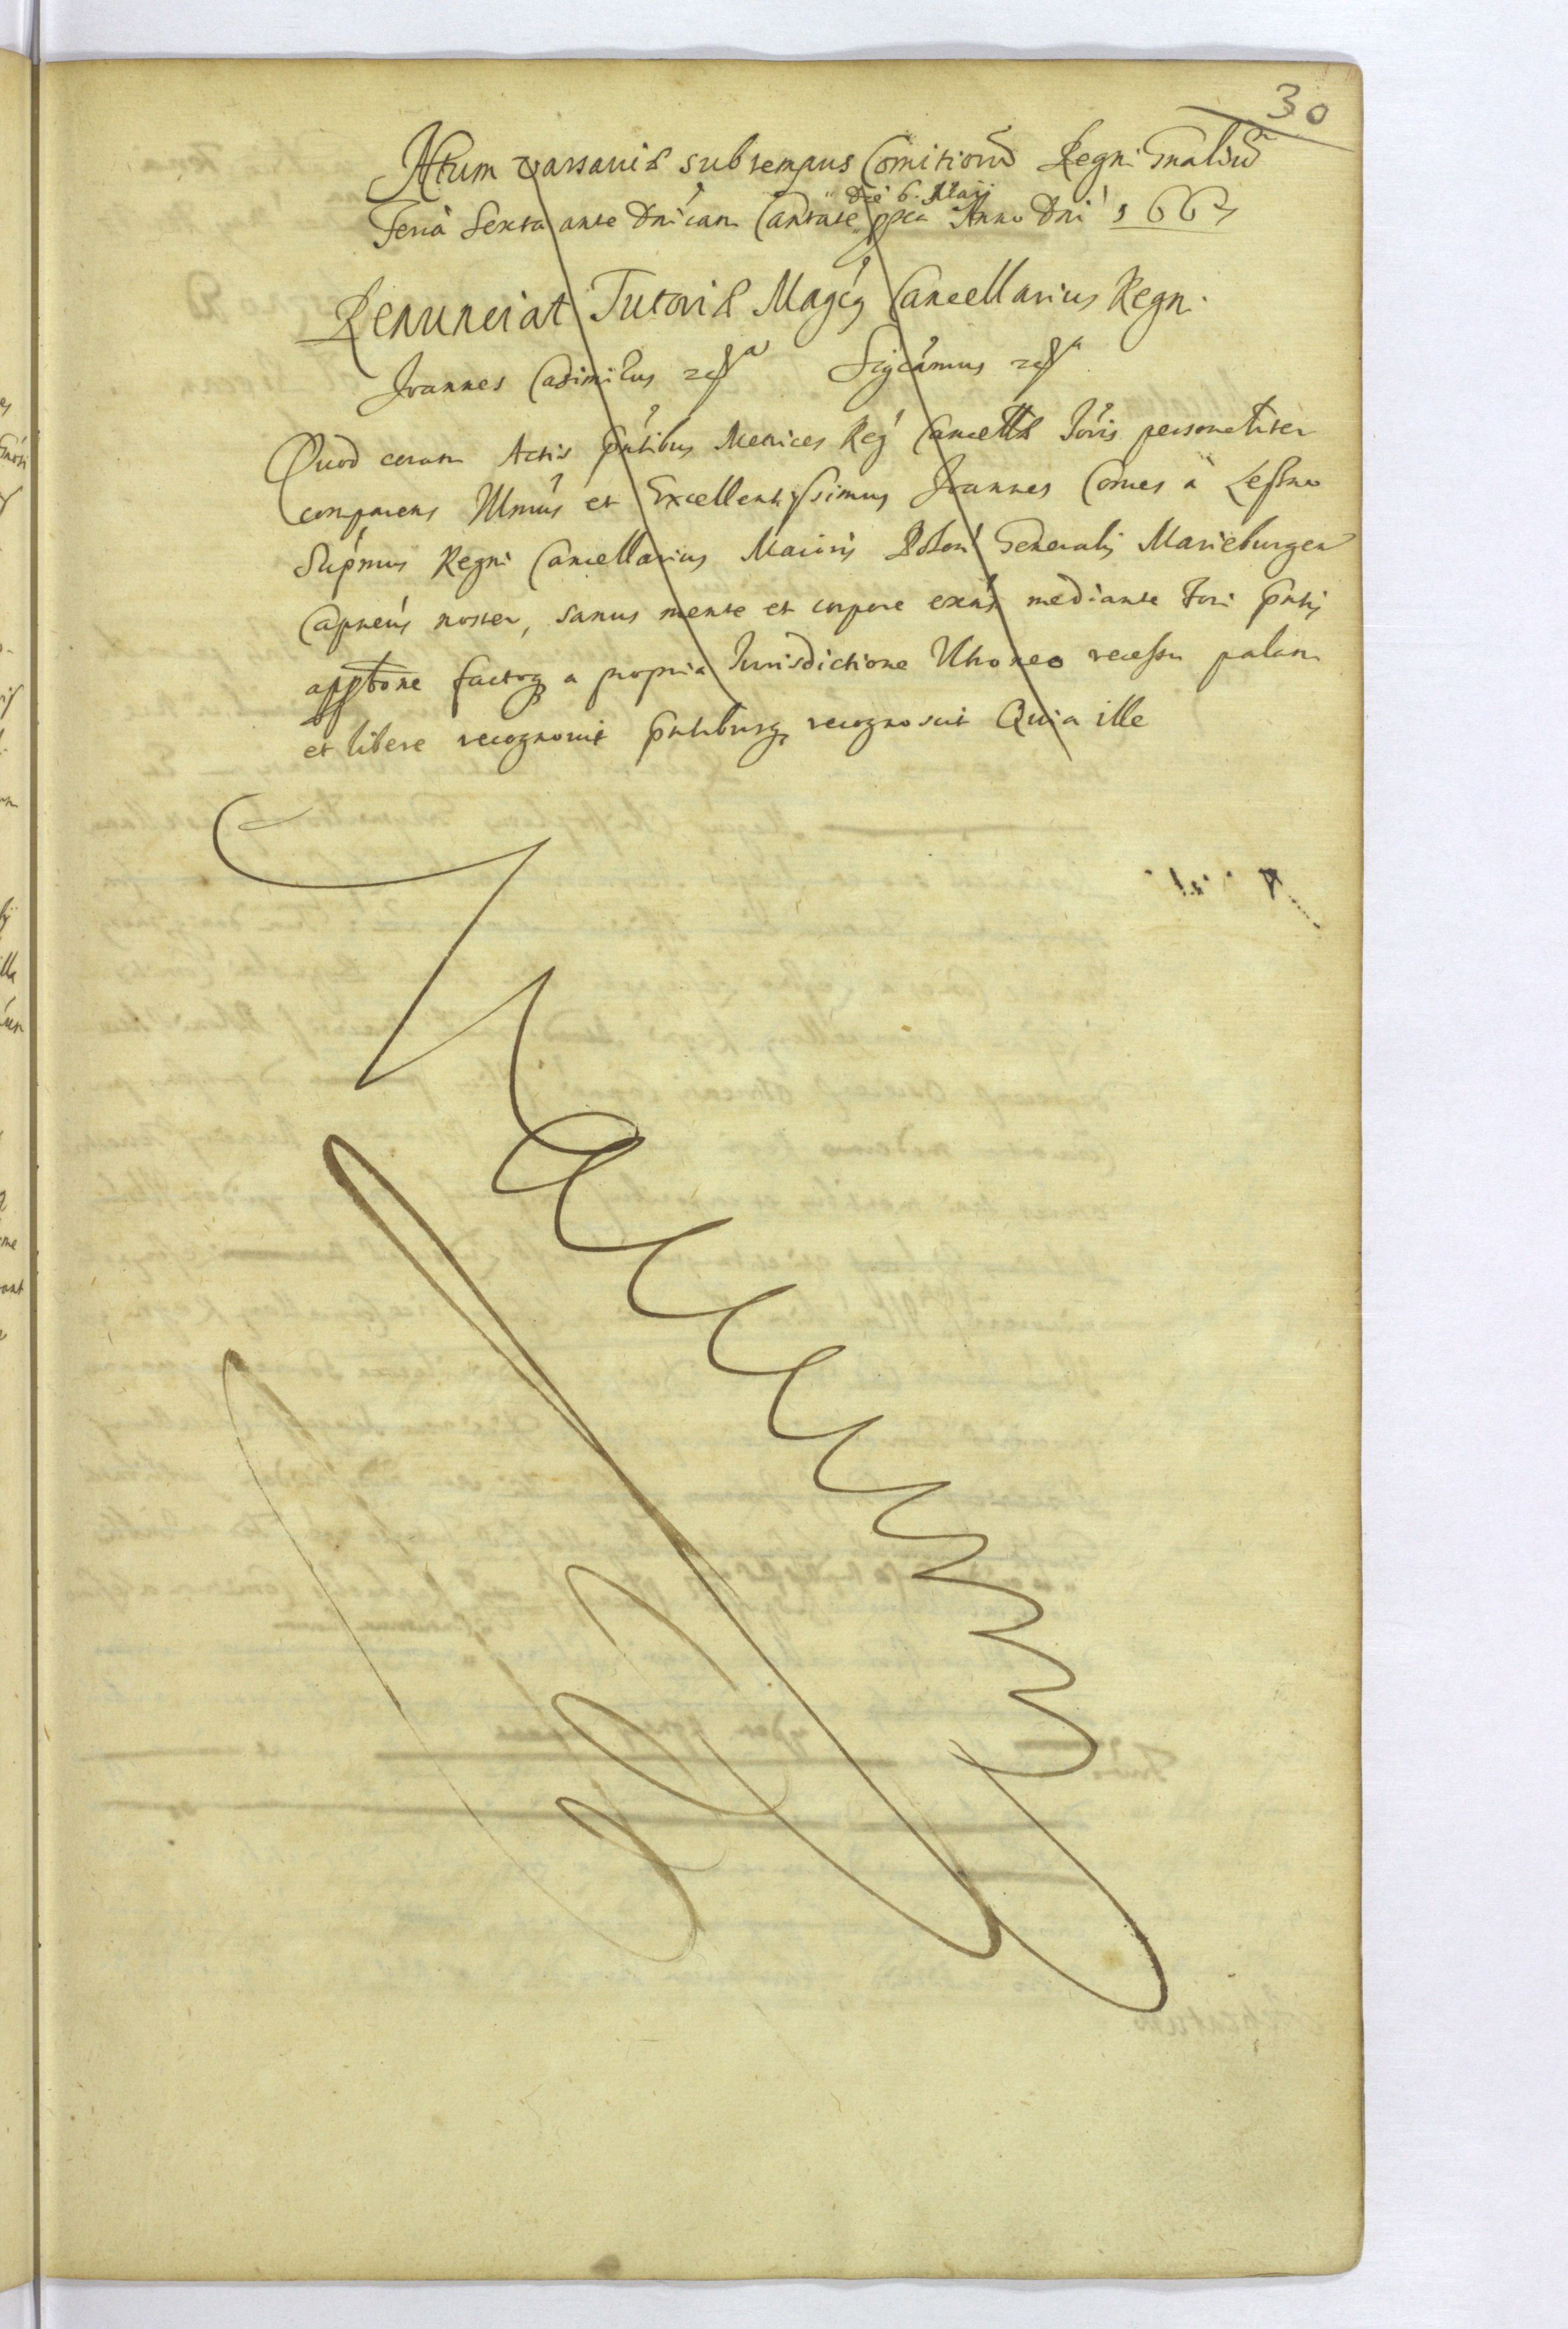 30
Actum Varsaviæ sub tempus Comitioru Regni Gnaliu
die 6. Maij
Feria Sexta ante Dnicam Cantate pxa Anno Dni 1667
Renunciat Tutoriæ Magcus Cancellarius Regn.
Joannes Casimirus Sigcamus
Quod coram Actis pntibus Metrices Reg Cancellæ Joris personaliter
comparens Illmus et Excellentissimus Joannes Comes à Lessno
Supmus Regni Cancellarius Maioris Poloni Generalis Marieburgen
Capneus noster, sanus mente et corpore exens mediante fori pntis
apptone factoq a propria Jurisdictione Uhoneo recessu palam
et libere recognovit pntibusq recognoscit Quia ille